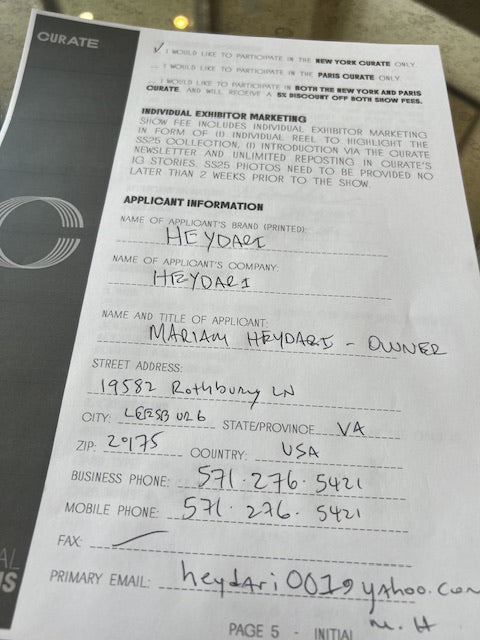 CURATE
✓ I WOULD LIKE TO PARTICIPATE IN THE NEW YORK CURATE ONLY.
... I WOULD LIKE TO PARTICIPATE IN THE PARIS CURATE ONLY.
... I WOULD LIKE TO PARTICIPATE IN BOTH THE NEW YORK AND PARIS
CURATE, AND WILL RECEIVE A 5% DISCOUNT OFF BOTH SHOW FEES.
INDIVIDUAL EXHIBITOR MARKETING
SHOW FEE INCLUDES INDIVIDUAL EXHIBITOR MARKETING
IN FORM OF (1) INDIVIDUAL REEL TO HIGHLIGHT THE
SS25 COLLECTION, (1) INTRODUCTION VIA THE CURATE
NEWSLETTER AND UNLIMITED REPOSTING IN CURATE'S
IG STORIES. SS25 PHOTOS NEED TO BE PROVIDED NO
LATER THAN 2 WEEKS PRIOR TO THE SHOW.
APPLICANT INFORMATION
NAME OF APPLICANT'S BRAND (PRINTED):
HEYDARI
NAME OF APPLICANT'S COMPANY:
HEYDARI
NAME AND TITLE OF APPLICANT:
MARIAM HEYDARI - OWNER
STREET ADDRESS:
19582 Rothbury LN
CITY: LEESBURG STATE/PROVINCE VA
ZIP: 20175 COUNTRY: USA
BUSINESS PHONE: 571.276.5421
MOBILE PHONE: 571.276.5421
FAX:
PRIMARY EMAIL: heydari001@yahoo.com
PAGE 5 - INITIAL M.H
AL
IS